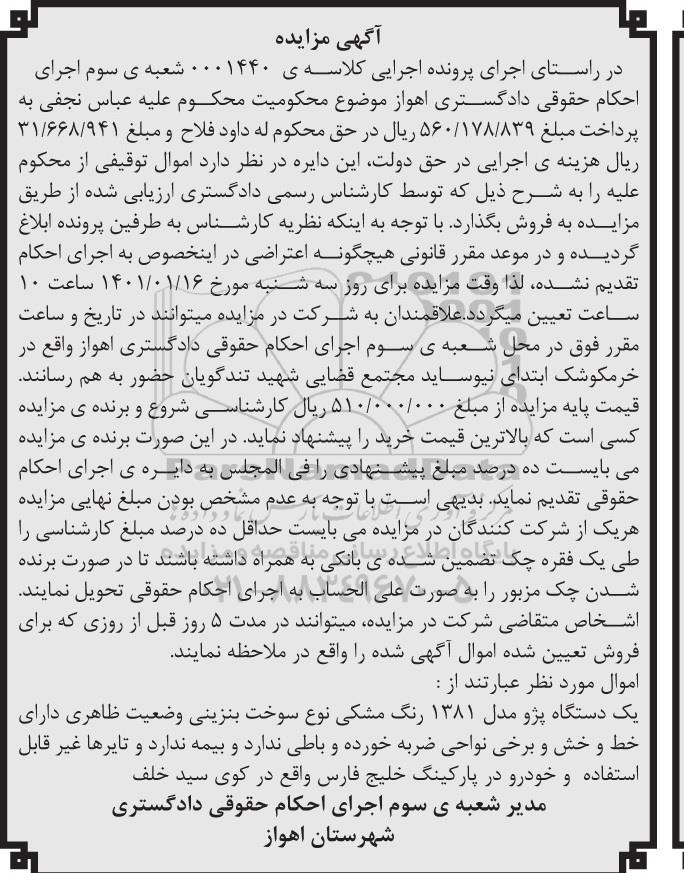 آگهی مزایده
در راستای اجرای پرونده اجرایی کلاسه ی ۰۰۰۱۴۴۰ شعبه ی سوم اجرای
احکام حقوقی دادگستری اهواز موضوع محکومیت محکوم علیه عباس نجفی به
پرداخت مبلغ ۵۶۰/۱۷۸/۸۳۹ ریال در حق محکوم له داود فلاح و مبلغ ۳۱/۶۶۸/۹۴۱
ریال هزینه ی اجرایی در حق دولت، این دایره در نظر دارد اموال توقیفی از محکوم
علیه را به شرح ذیل که توسط کارشناس رسمی دادگستری ارزیابی شده از طریق
مزایده به فروش بگذارد. با توجه به اینکه نظریه کارشناس به طرفین پرونده ابلاغ
گردیده و در موعد مقرر قانونی هیچگونه اعتراضی در اینخصوص به اجرای احکام
تقدیم نشده، لذا وقت مزایده برای روز سه شنبه مورخ ۱۴۰۱/۰۱/۱۶ ساعت ۱۰
ساعت تعیین میگردد.علاقمندان به شرکت در مزایده میتوانند در تاریخ و ساعت
مقرر فوق در محل شعبه ی سوم اجرای احکام حقوقی دادگستری اهواز واقع در
خرمکوشک ابتدای نیوساید مجتمع قضایی شهید تندگویان حضور به هم رسانند.
قیمت پایه مزایده از مبلغ ۵۱۰/۰۰۰/۰۰۰ ریال کارشناسی شروع و برنده ی مزایده
کسی است که بالاترین قیمت خرید را پیشنهاد نماید. در این صورت برنده ی مزایده
می بایست ده درصد مبلغ پیشنهادی را فی المجلس به دایره ی اجرای احکام
حقوقی تقدیم نماید. بدیهی است با توجه به عدم مشخص بودن مبلغ نهایی مزایده
هریک از شرکت کنندگان در مزایده می بایست حداقل ده درصد مبلغ کارشناسی را
طی یک فقره چک تضمین شده ی بانکی به همراه داشته باشند تا در صورت برنده
شدن چک مزبور را به صورت علی الحساب به اجرای احکام حقوقی تحویل نمایند.
اشخاص متقاضی شرکت در مزایده، میتوانند در مدت ۵ روز قبل از روزی که برای
فروش تعیین شده اموال آگهی شده را واقع در ملاحظه نمایند.
اموال مورد نظر عبارتند از :
یک دستگاه پژو مدل ۱۳۸۱ رنگ مشکی نوع سوخت بنزینی وضعیت ظاهری دارای
خط و خش و برخی نواحی ضربه خورده و باطی ندارد و بیمه ندارد و تایرها غیر قابل
استفاده و خودرو در پارکینگ خلیج فارس واقع در کوی سید خلف
مدیر شعبه ی سوم اجرای احکام حقوقی دادگستری
شهرستان اهواز
ParsNamadData
پایگاه اطلاع رسانی مناقصه و مزایده
۰۲۱-۸۸۳۴۹۶۷۰-۵